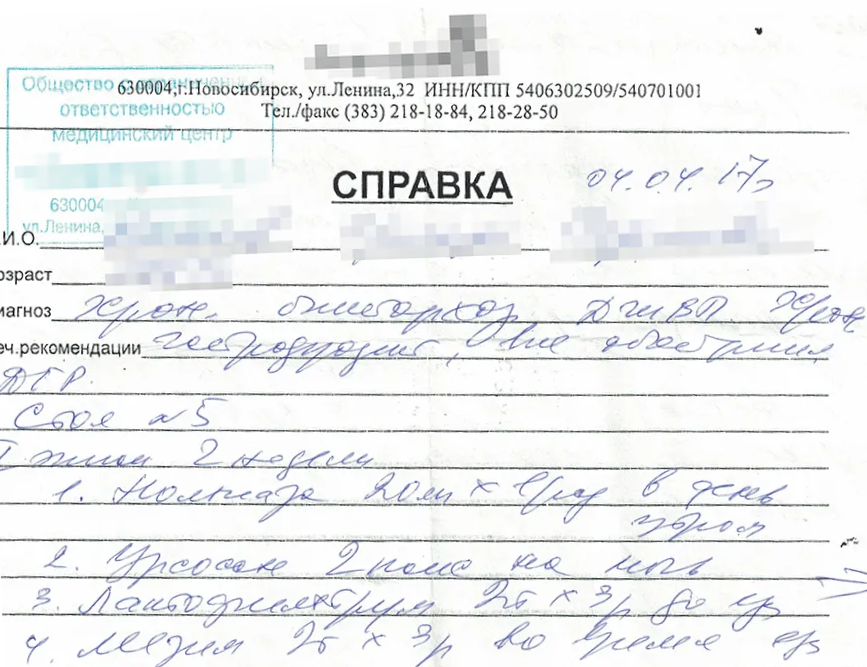 Общество с ограниченной
ответственностью
медицинский центр
630004,г.Новосибирск, ул.Ленина,32 ИНН/КПП 5406302509/540701001
Тел./факс (383) 218-18-84, 218-28-50
630004
ул.Ленина,
СПРАВКА
04.04.17г
.И.О.
озраст
иагноз Хрон. описторхоз ДЖВП. Хрон
еч.рекомендации гастродуоденит, вне обострения
ДГР.
Стол №5
I этап 2 недели
1. Нольпаза 20мг х 1раз в день
утром
2. Урсосан 2 капс на ночь
3. Лактофильтрум 2т х 3р до еды
4. Мезим 2т х 3р во время еды